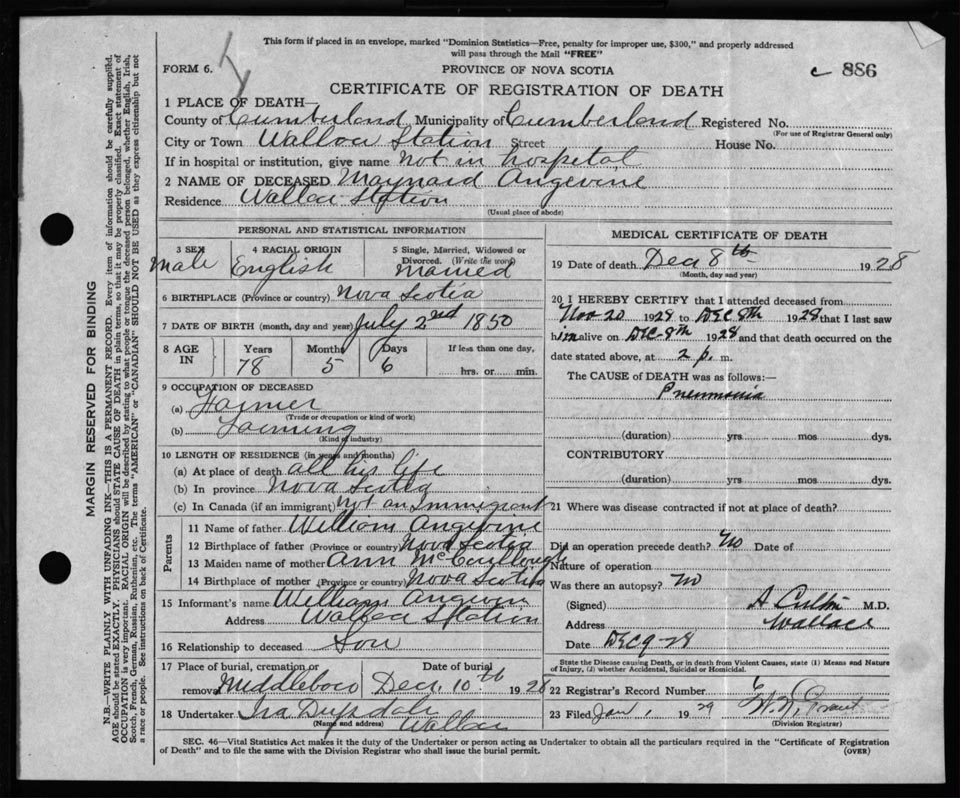 This form if placed in an envelope, marked "Dominion Statistics—Free, penalty for improper use, $300," and properly addressed
will pass through the Mail "FREE"
FORM 6.
PROVINCE OF NOVA SCOTIA
c 886
CERTIFICATE OF REGISTRATION OF DEATH
1 PLACE OF DEATH—
County of Cumberland Municipality of Cumberland Registered No.
(For use of Registrar General only)
City or Town Wallace Station Street House No.
If in hospital or institution, give name not in hospital
2 NAME OF DECEASED Maynard Angevine
Residence Wallace Station
(Usual place of abode)
PERSONAL AND STATISTICAL INFORMATION
3 SEX Male
4 RACIAL ORIGIN English
5 Single, Married, Widowed or Divorced. (Write the word) married
6 BIRTHPLACE (Province or country) Nova Scotia
7 DATE OF BIRTH (month, day and year) July 2nd 1850
8 AGE IN Years 78 Months 5 Days 6 If less than one day, hrs. or min.
9 OCCUPATION OF DECEASED
(a) Farmer
(Trade or occupation or kind of work)
(b) Farming
(Kind of industry)
10 LENGTH OF RESIDENCE (in years and months)
(a) At place of death all his life
(b) In province Nova Scotia
(c) In Canada (if an immigrant) not an Immigrant
Parents
11 Name of father William Angevine
12 Birthplace of father (Province or country) Nova Scotia
13 Maiden name of mother Ann
14 Birthplace of mother (Province or country) Nova Scotia
15 Informant's name William Angevine
Address Wallace Station
16 Relationship to deceased Son
17 Place of burial, cremation or removal Middleboro
Date of burial Dec. 10th 1928
18 Undertaker Ira
(Name and address) Wallace
MEDICAL CERTIFICATE OF DEATH
19 Date of death Dec 8th 1928
(Month, day and year)
20 I HEREBY CERTIFY that I attended deceased from
Nov 20 1928 to Dec 8th 1928 that I last saw
him alive on Dec 8th 1928 and that death occurred on the
date stated above, at 2 p. m.
The CAUSE of DEATH was as follows:—
Pneumonia
(duration) yrs. mos. dys.
CONTRIBUTORY
(duration) yrs. mos. dys.
21 Where was disease contracted if not at place of death?
Did an operation precede death? No Date of
Nature of operation
Was there an autopsy? No
(Signed) A M.D.
Address Wallace
Date Dec 9-28
State the Disease causing Death, or in death from Violent Causes, state (1) Means and Nature
of Injury, and (2) whether Accidental, Suicidal or Homicidal.
22 Registrar's Record Number 6
23 Filed Jan 1 1929
(Division Registrar)
SEC. 46—Vital Statistics Act makes it the duty of the Undertaker or person acting as Undertaker to obtain all the particulars required in the "Certificate of Registration
of Death" and to file the same with the Division Registrar who shall issue the burial permit.
(OVER)
MARGIN RESERVED FOR BINDING
N.B.—WRITE PLAINLY WITH UNFADING INK—THIS IS A PERMANENT RECORD. Every item of information should be carefully supplied.
AGE should be stated EXACTLY. PHYSICIANS should STATE CAUSE OF DEATH in plain terms, so that it may be properly classified. Exact statement of
OCCUPATION is very important. RACIAL ORIGIN will be described by stating to what people or tongue the deceased person belonged, whether English, Irish,
Scotch, French, German, Russian, Ruthenian, etc. The terms "AMERICAN" or "CANADIAN" SHOULD NOT BE USED as they express citizenship but not
a race or people. See instructions on back of Certificate.